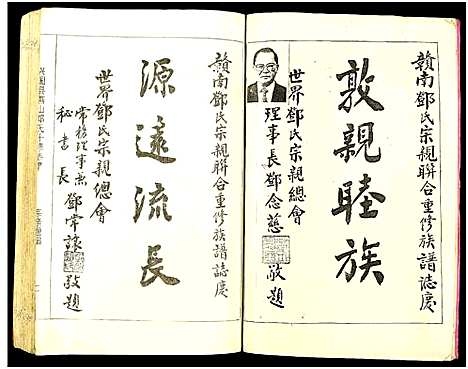 贛南鄧氏宗親聯合重修族譜誌慶
敦親睦族
世界鄧氏宗親總會
理事長鄧念慈
敬題
贛南鄧氏宗親聯合重修族譜誌慶
源遠流長
世界鄧氏宗親總會
常務理事兼
秘書長
鄧常
敬題